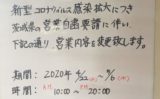 新型コロナウィルス感染拡大につき
茨城県の営業自粛要請に伴い
下記の通り、営業内容を変更致します。
期間：2020年 4/22(水)～5/6(水)
時間：10:00 ～ 20:00